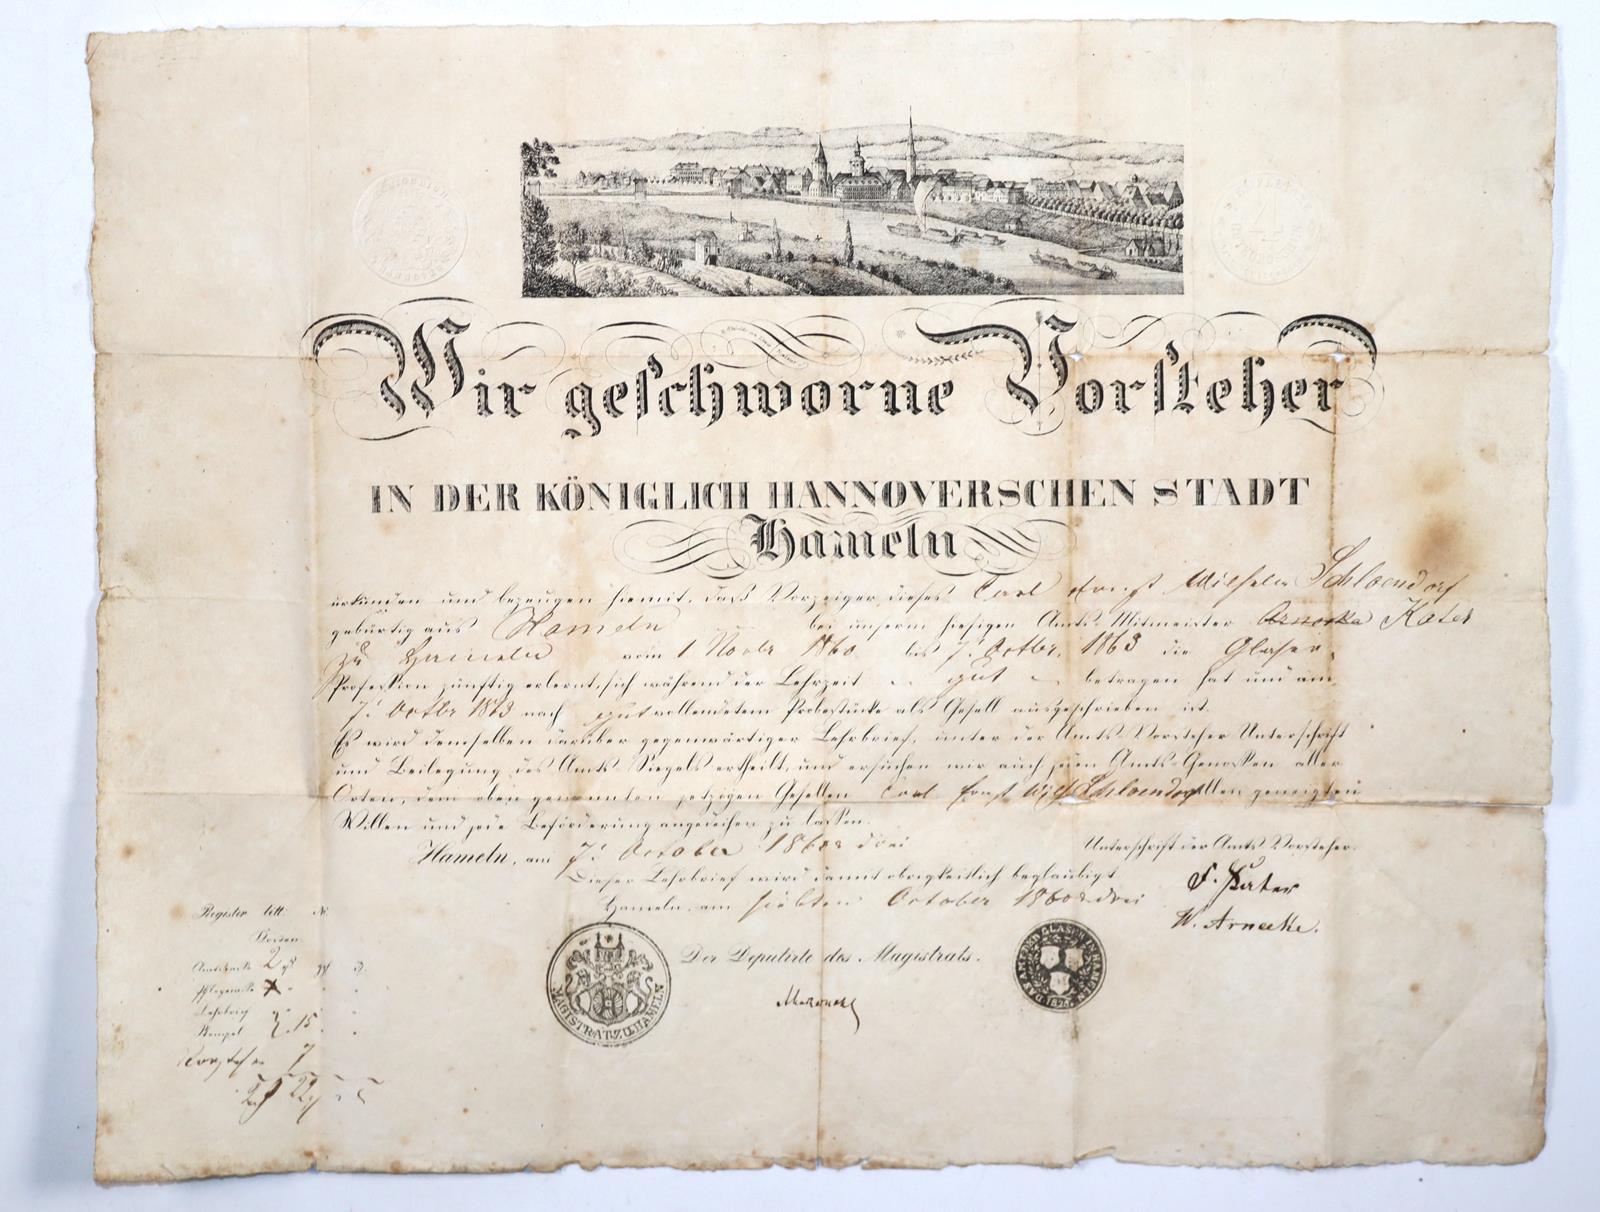 Wir geschworne Vorsteher
IN DER KÖNIGLICH HANNOVERSCHEN STADT
Hameln
urkunden und bezeugen hiemit, daß Vorzeiger dieses Carl Ernst Wilhelm Schloendorf
gebürtig aus Hameln bei unserm hiesigen Amts-Mitmeister Arnecke Kater
zu Hameln vom 1 Novbr 1860 bis 7. Octbr. 1863 die Glaser-
Profession zünftig erlernt, sich während der Lehrzeit gut betragen hat und am
7. Octbr 1863 nach gut vollendetem Probestücke als Gesell ausgeschrieben ist.
Es wird demselben darüber gegenwärtiger Lehrbrief, unter der Amts-Vorsteher Unterschrift
und Beilegung des Amts-Siegels ertheilt, und ersuchen wir auch jeden Amts-Genossen aller
Orten, dem oben genannten jetzigen Gesellen Carl Ernst Wilh Schloendorf allen geneigten
Willen und jede Beförderung angedeihen zu lassen.
Hameln, am 7. October 1860 & drei
Unterschrift der Amts-Vorsteher.
Dieser Lehrbrief wird damit obrigkeitlich beglaubigt
F. Kater
Hameln, am siebten October 1860 & drei
W. Arnecke.
Register litt. №
Kosten
2
Lehrbrief
Stempel 15
Vorsteher 7
Der Deputirte des Magistrats.
MAGISTRAT ZU HAMELN
DAS AMT DER GLASER IN HAMELN
4